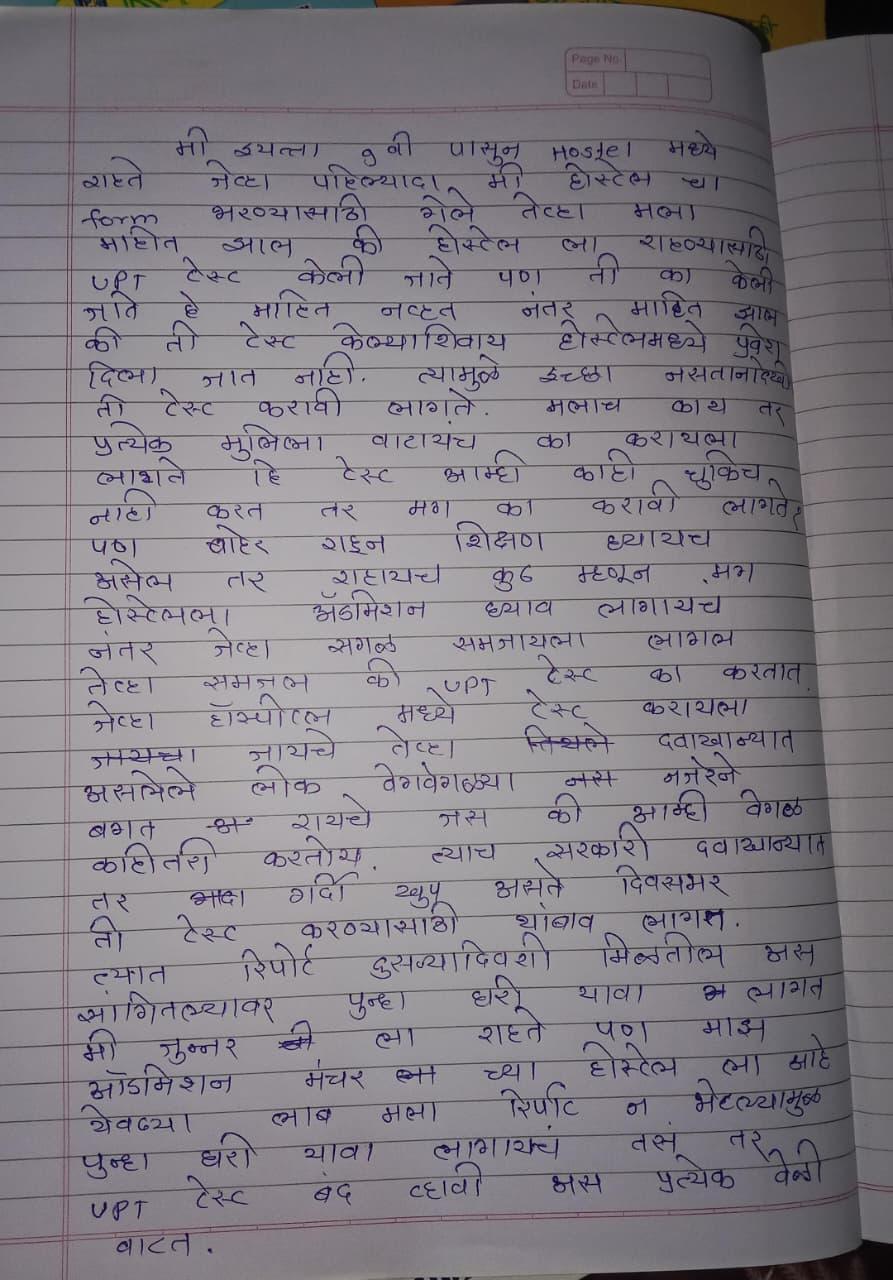 Page No.
Date
मी इयत्ता 9 वी पासुन Hostel मध्ये
राहते जेव्हा पहिल्यादा मी होस्टेल चा
form भरण्यासाठि गेले तेव्हा मला
माहीत झाल की होस्टेल ला राहण्यासाठि
UPT टेस्ट केली जाते पण ती का केली
जाते हे माहित नव्हत नंतर माहित झाल
की ती टेस्ट केल्याशिवाय होस्टेलमध्ये प्रवेश
दिला जात नाही. त्यामुळे इच्छा नसतानादेखी
ती टेस्ट करावी लागते. मलाच काय तर
प्रत्येक मुलिला वाटायच का करायला
लागते हि टेस्ट आम्ही काही चुकिच
नाही करत तर मग का करावी लागते
पण बाहेर राहून शिक्षण घ्यायच
असेल तर राहायच कुठ म्हणून मग
होस्टेलला ॲडमिशन घ्याव लागायच
नंतर जेव्हा सगळ समजायला लागल
तेव्हा समजल की UPT टेस्ट का करतात
जेव्हा हॉस्पीटल मध्ये टेस्ट करायला
जायचा जायचे तेव्हा तिथले दवाखान्यात
असलेले लोक वेगवेगळ्या नस नजरेने
बघत रायचे जस की आम्ही वेगळ
काहितरी करतोय. त्याच सरकारी दवाखान्यात
तर गर्दी खुप असते दिवसभर
ती टेस्ट करण्यासाठी थांबाव लागत.
त्यात रिपोर्ट दुसऱ्यादिवशी मिळतील अस
सांगितल्यावर पुन्हा घरी यावा लागत
मी जुन्नर ला राहते पण माझ
ॲडमिशन मंचर च्या होस्टेल ला आहे
येवढ्या लांब मला रिर्पोट न भेटल्यामुळ
पुन्हा घरी यावा लागायचं तसं तर
UPT टेस्ट बंद व्हावी अस प्रत्येक वेळी
वाटत.